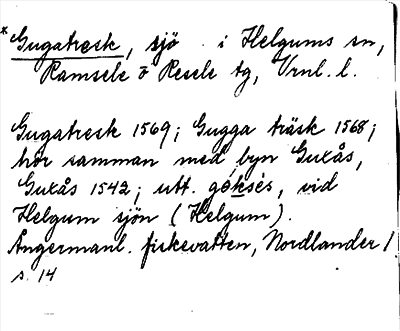 * Gugatresk, sjö i Helgums sn,
Ramsele o Resele tg, Vrnl. l.
Gugatresk 1569; Gugga träsk 1568;
hör samman med byn Guxås,
Guxås 1542; utt. góksés, vid
Helgum sjön (Helgum).
Ångermanl. fiskevatten, Nordlander 1
s. 14